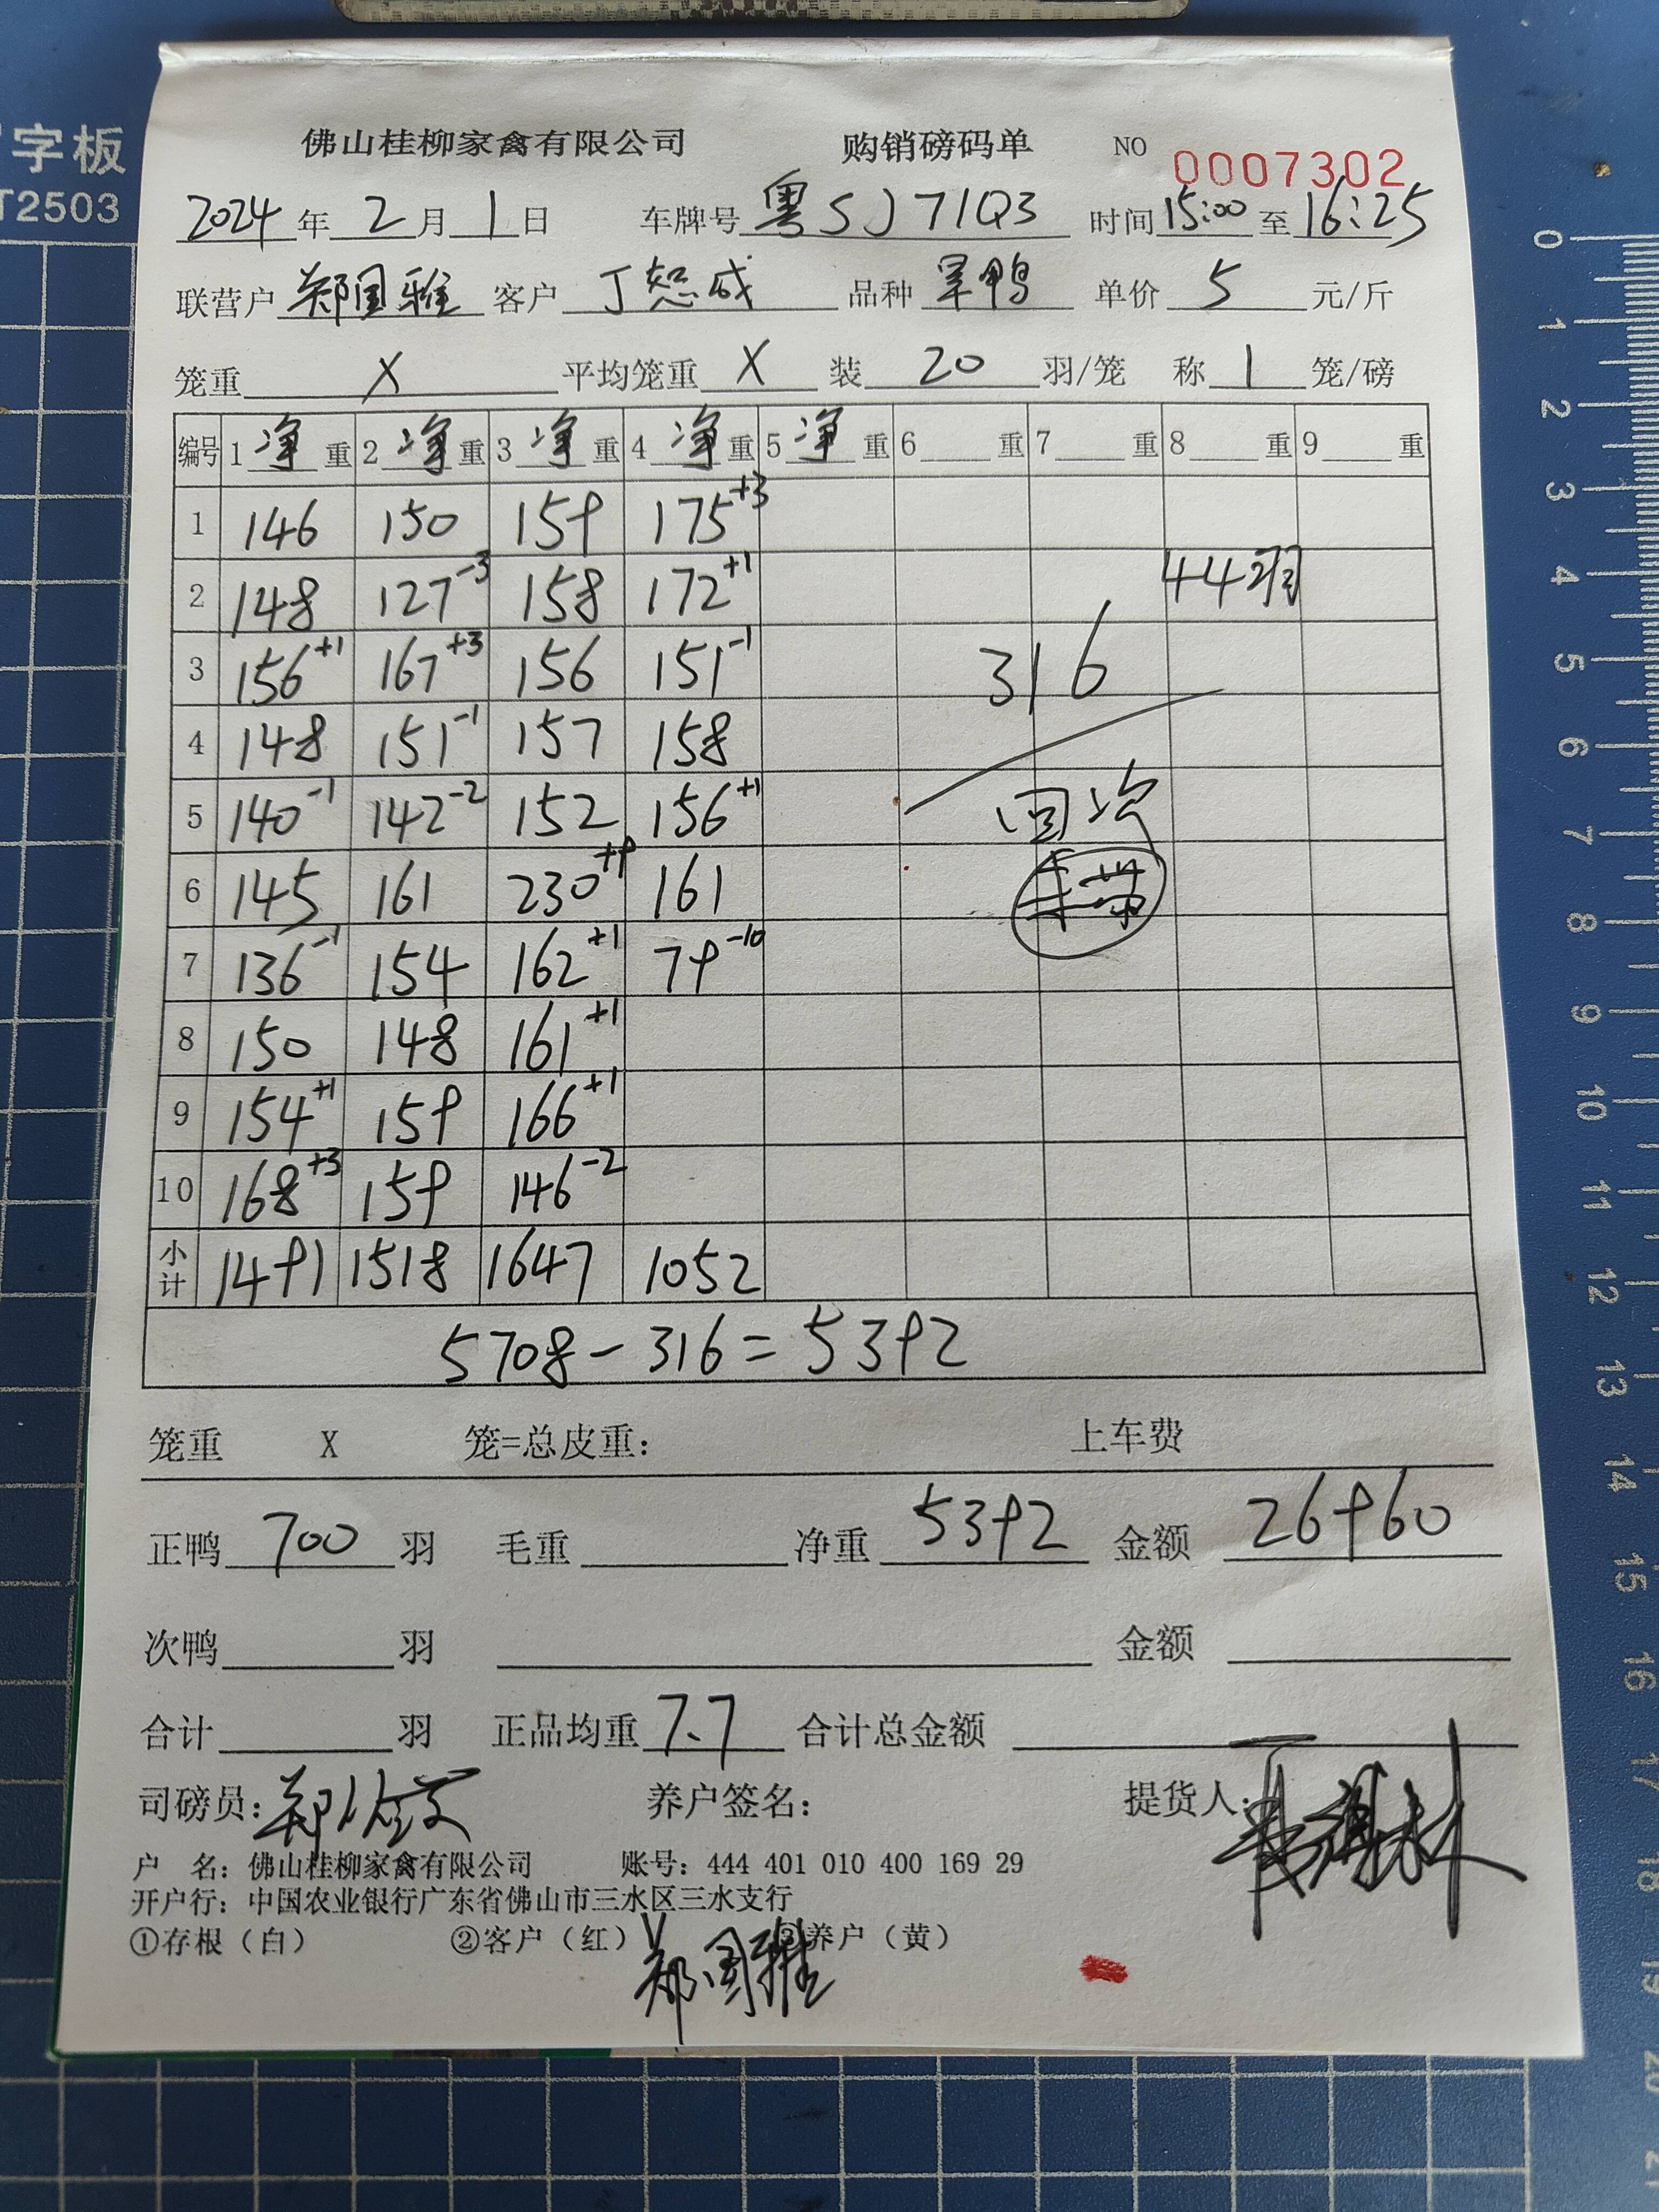 字板
T2503
佛山桂柳家禽有限公司 购销磅码单 NO 0007302
2024年2月1日 车牌号粤SJ71Q3 时间15:00至16:25
联营户郑国雅 客户丁恕成 品种旱鸭 单价5元/斤
笼重X 平均笼重X 装20羽/笼 称1笼/磅
编号 1净重 2净重 3净重 4净重 5净重 6重 7重 8重 9重
1 146 150 159 175+3
2 148 127-3 158 172+1 44羽
3 156+1 167+3 156 151-1 316
4 148 151-1 157 158
5 140-1 142-2 152 156+1 回次
6 145 161 230+9 161
7 136-1 154 162+1 79-10
8 150 148 161+1
9 154+1 159 166+1
10 168+3 159 146-2
小计 1491 1518 1647 1052
5708-316=5392
笼重 X 笼=总皮重: 上车费
正鸭700羽 毛重 净重5392 金额26960
次鸭 羽 金额
合计 羽 正品均重7.7 合计总金额
司磅员: 养户签名: 提货人:
户 名: 佛山桂柳家禽有限公司 账号: 444 401 010 400 169 29
开户行: 中国农业银行广东省佛山市三水区三水支行
①存根（白） ②客户（红） ③养户（黄）
郑国雅
0
1
2
3
4
5
6
7
8
9
10
11
12
13
14
15
16
17
18
19
20
21